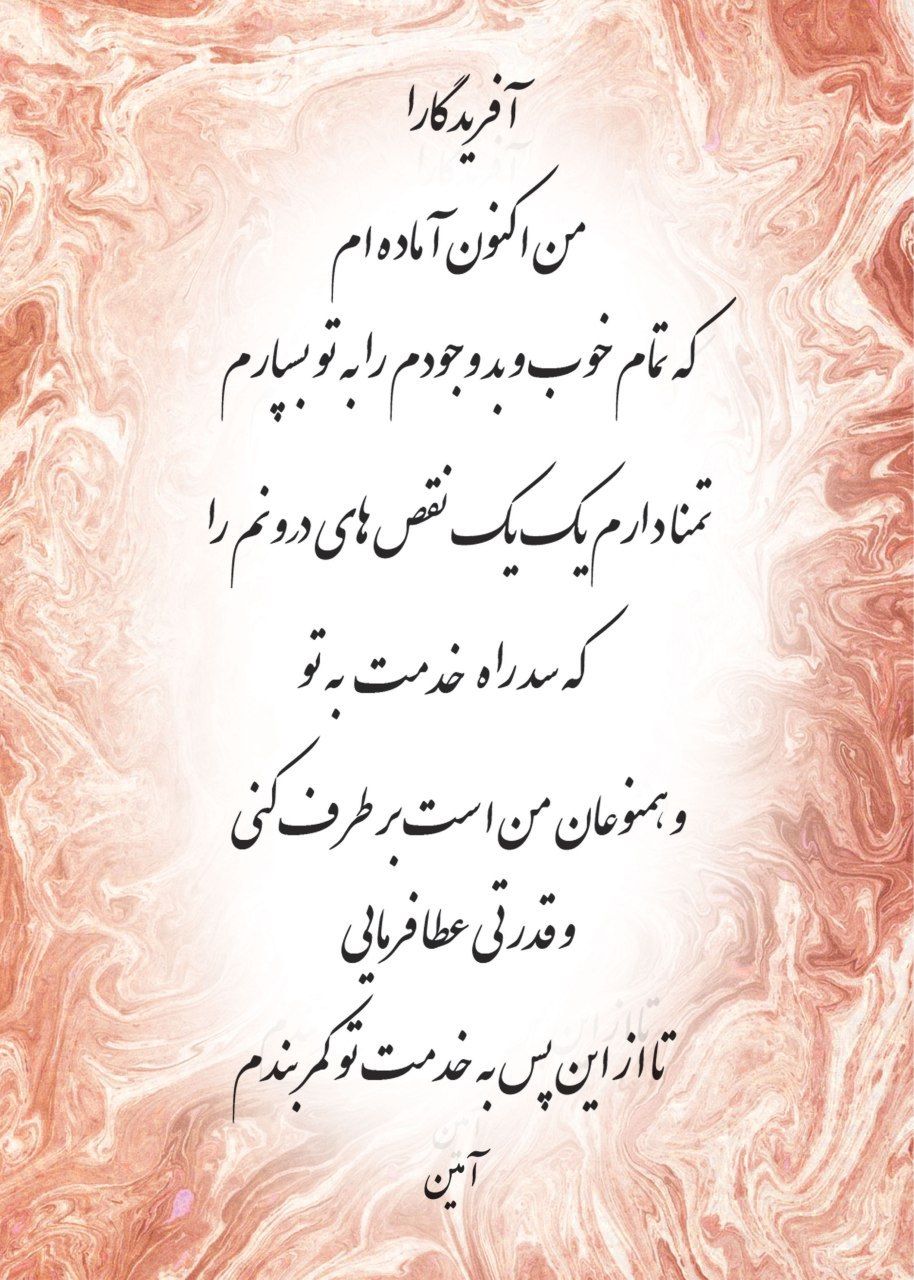 آفریدگارا
من اکنون آماده ام
که تمام خوب و بد وجودم را به تو بسپارم
تمنا دارم یک یک نقص های درونم را
که سد راه خدمت به تو
و همنوعان من است بر طرف کنی
و قدرتی عطا فرمایی
تا از این پس به خدمت تو کمر بندم
آمین